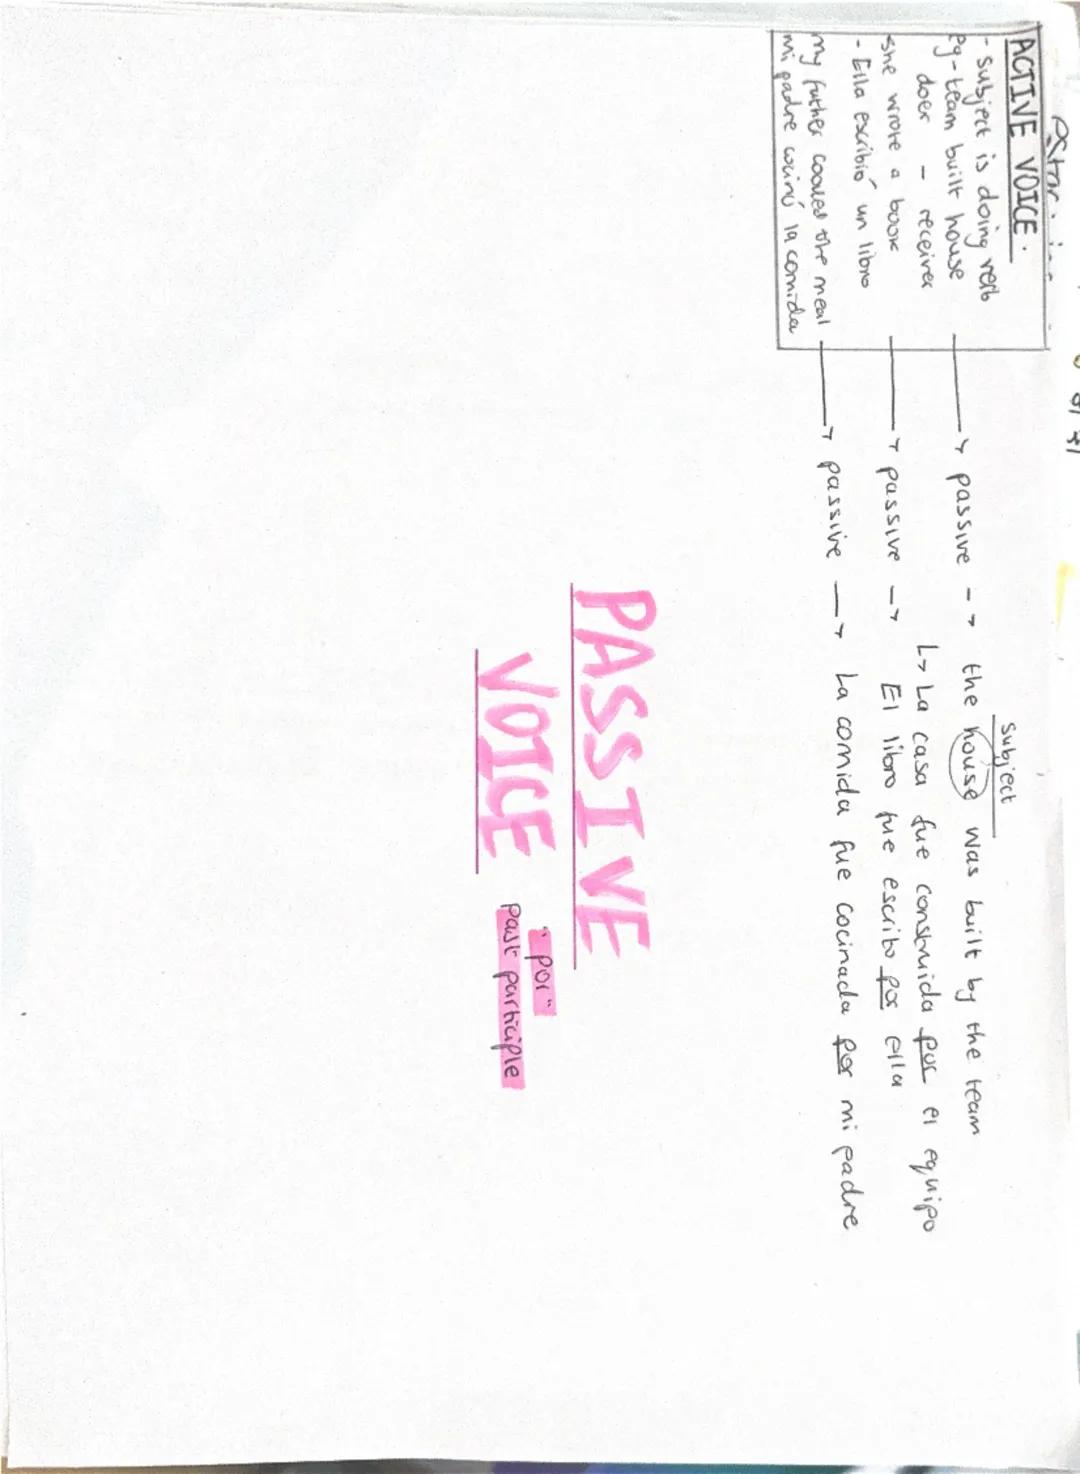 ACTIVE VOICE.
- subject is doing verb
eg - team built house
doer - receiver
she wrote a book
- Ella escribió un libro
my father cooked the meal
mi padre cocinó la comida
subject
→ passive -→ the house was built by the team
↳ La casa fue construida por el equipo
→ passive -→ El libro fue escrito por ella
→ passive → La comida fue cocinada por mi padre
PASSIVE
VOICE
"por"
past participle